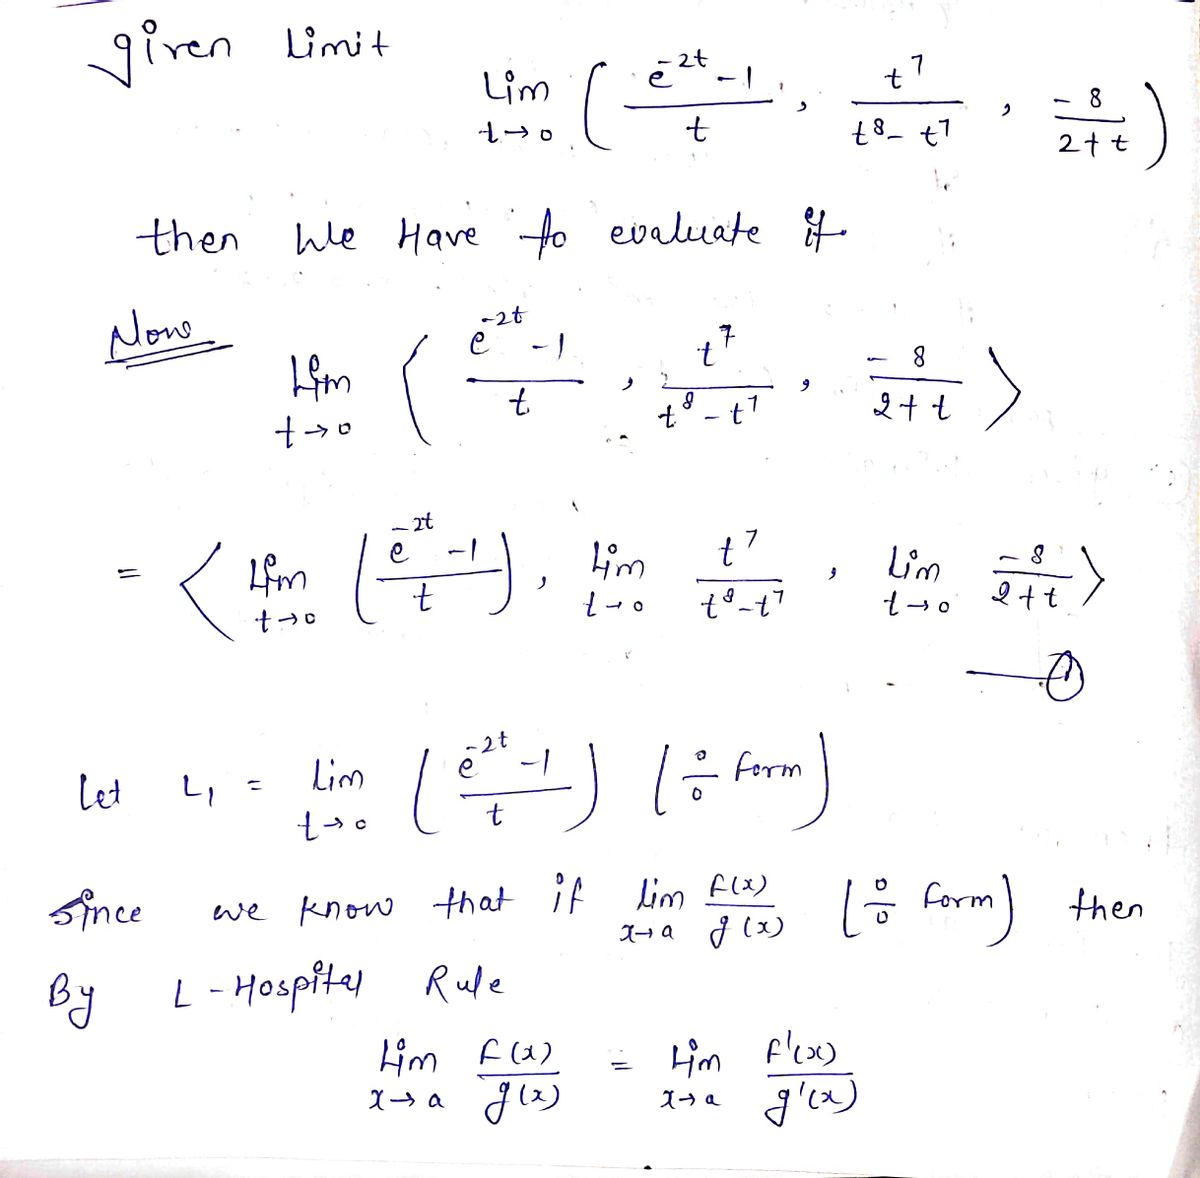 given Limit
Lim t→0 ( (e^-2t - 1)/t , t^7/(t^8 - t^7) , -8/(2+t) )
then We Have to evaluate it
Now
Lim t→0 ⟨ (e^-2t - 1)/t , t^7/(t^8 - t^7) , -8/(2+t) ⟩
= ⟨ Lim t→0 ( (e^-2t - 1)/t ) , Lim t→0 t^7/(t^8 - t^7) , Lim t→0 -8/(2+t) ⟩
—①
Let L₁ = Lim t→0 ( (e^-2t - 1)/t ) ( 0/0 form )
Since we know that if lim x→a f(x)/g(x) ( 0/0 form ) then
By L-Hospital Rule
Lim x→a f(x)/g(x) = Lim x→a f'(x)/g'(x)